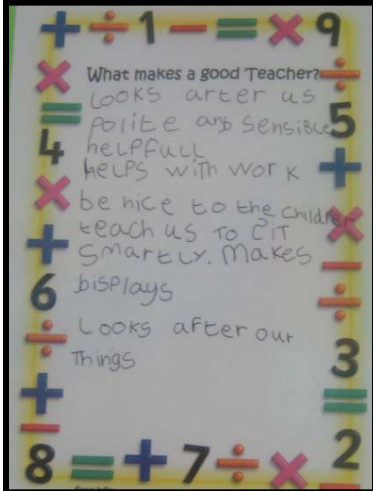 + ÷ 1 − = × 9
What makes a good Teacher?
Looks arter us
Polite and sensible
helpfull
Helps with work
be nice to the children
teach us to cit
smartly. Makes
displays
Looks after our
Things
× = 4 × + 6 ÷ + −
÷ 5 + × − ÷ 3 = 2 −
8 = + 7 ÷ ×